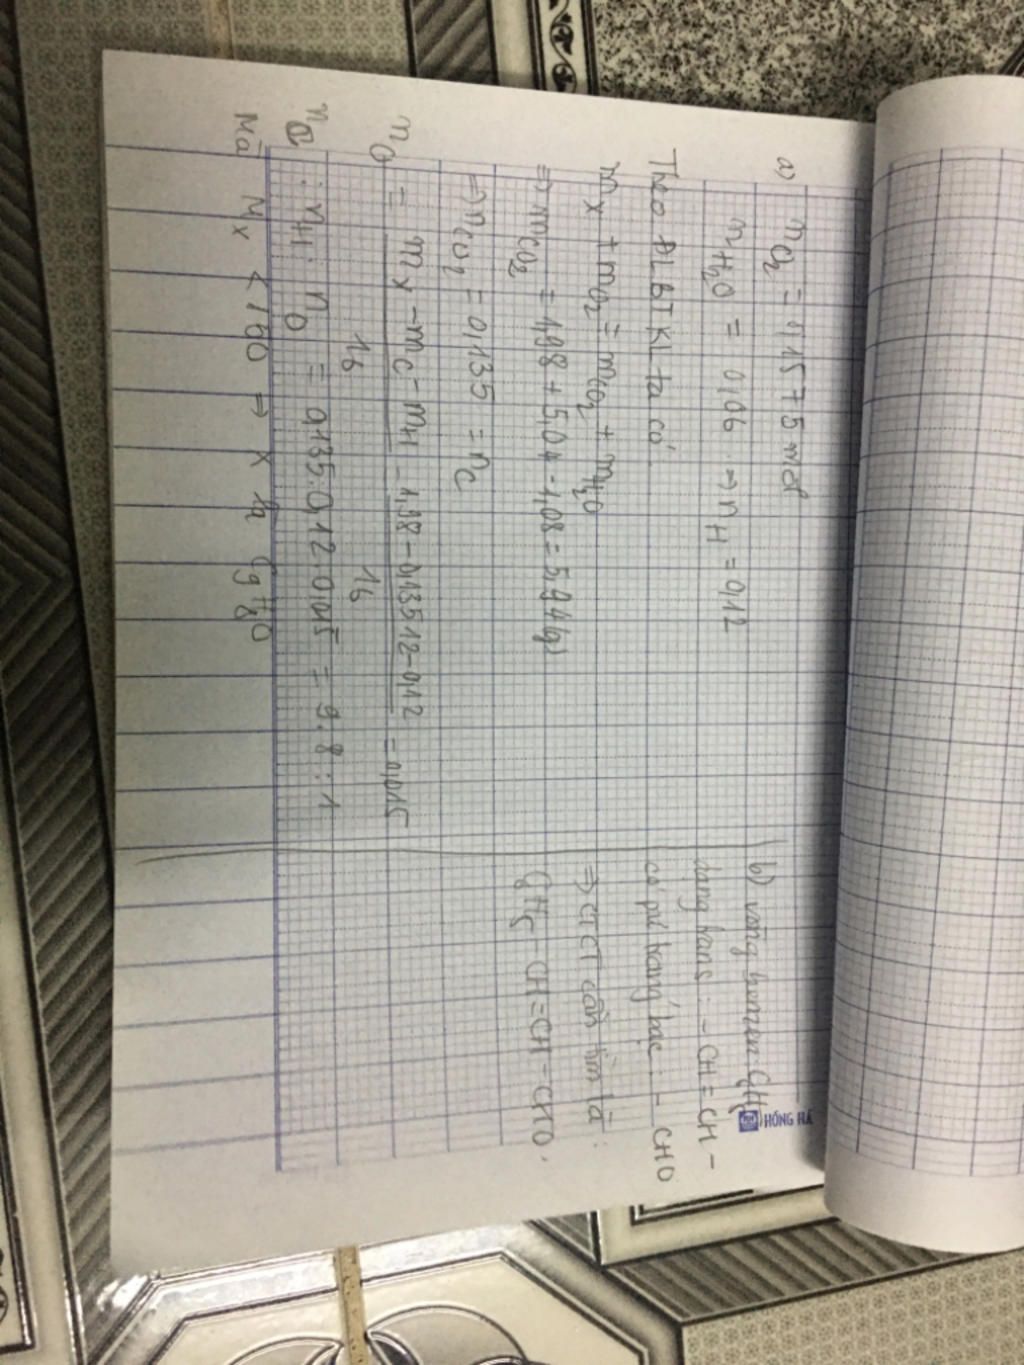 a) nO2 = 0,1575 mol
nH2O = 0,06 → nH = 0,12
Theo ĐLBTKL ta có
mx + mO2 = mCO2 + mH2O
⇒ mCO2 = 1,98 + 5,04 - 1,08 = 5,94 (g)
⇒ nCO2 = 0,135 = nC
nO = mx - mC - mH / 16 = 1,98 - 0,135.12 - 0,12 / 16 = 0,015
nC : nH : nO = 0,135 : 0,12 : 0,015 = 9 : 8 : 1
Mà Mx < 150 ⇒ X là C9H8O
b) vòng benzen C6H5
dạng trans : - CH = CH -
có pư tráng bạc : - CHO
⇒ CTCT cần tìm là :
C6H5 - CH = CH - CHO.
HỒNG HÀ